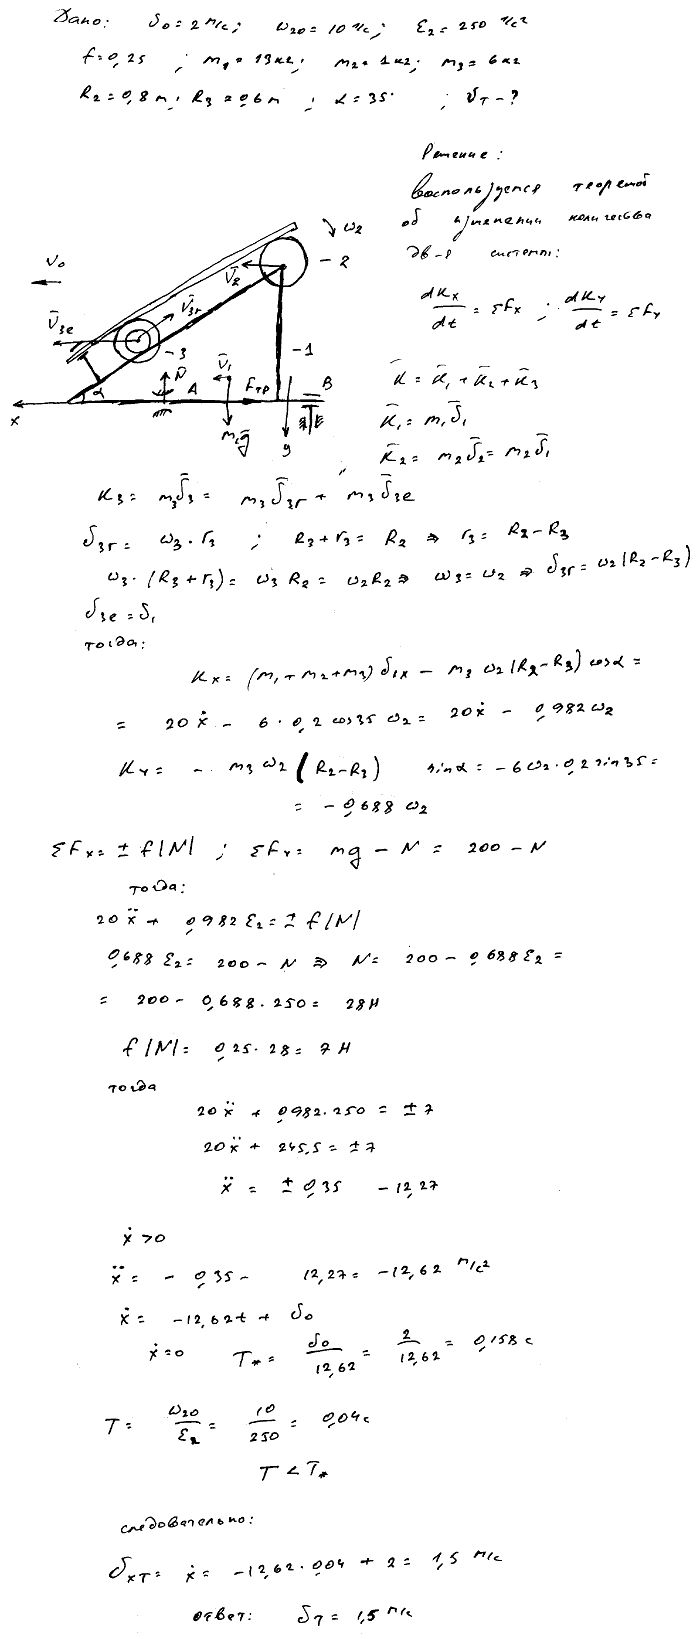 Дано: v₀ = 2 м/с; ω₂₀ = 10 1/с; ε₂ = 250 1/с²
f = 0,25 ; m₁ = 13 кг; m₂ = 1 кг; m₃ = 6 кг
R₂ = 0,8 м; R₃ = 0,6 м ; α = 35° ; v_T - ?
Решение:
Воспользуемся теоремой
об изменении количества
дв-я системы:
dK_x/dt = ΣF_x ; dK_y/dt = ΣF_y
K̄ = K̄₁ + K̄₂ + K̄₃
K̄₁ = m₁v̄₁
K̄₂ = m₂v̄₂ = m₂v̄₁
ω₂
V₀
V̄₂
- 2
V̄₃r
V̄₃e
- 3
- 1
N̄
V̄₁
α
A
Fтр
B
x
m₁ḡ
y
K₃ = m₃v̄₃ = m₃v̄₃r + m₃v̄₃e
v₃r = ω₃ · r₃ ; R₃ + r₃ = R₂ ⇒ r₃ = R₂ - R₃
ω₃ · (R₃ + r₃) = ω₃R₂ = ω₂R₂ ⇒ ω₃ = ω₂ ⇒ v₃r = ω₂(R₂ - R₃)
v₃e = v₁
тогда:
K_x = (m₁ + m₂ + m₃) v₁x - m₃ω₂(R₂ - R₃) cosα =
= 20ẋ - 6 · 0,2 cos35 ω₂ = 20ẋ - 0,982ω₂
K_y = - m₃ω₂(R₂ - R₃) sinα = -6ω₂ · 0,2 sin35 =
= - 0,688 ω₂
ΣF_x = ± f|N| ; ΣF_y = mg - N = 200 - N
тогда:
20ẍ + 0,982ε₂ = ± f|N|
0,688ε₂ = 200 - N ⇒ N = 200 - 0,688ε₂ =
= 200 - 0,688 · 250 = 28 Н
f|N| = 0,25 · 28 = 7 Н
тогда
20ẍ + 0,982 · 250 = ± 7
20ẍ + 245,5 = ± 7
ẍ = ± 0,35 - 12,27
ẋ > 0
ẍ = - 0,35 - 12,27 = -12,62 м/с²
ẋ = -12,62t + v₀
ẋ = 0 T* = v₀/12,62 = 2/12,62 = 0,158 с
T = ω₂₀/ε₂ = 10/250 = 0,04 с
T < T*
следовательно:
v_xT = ẋ = -12,62 · 0,04 + 2 = 1,5 м/с
ответ: v_T = 1,5 м/с